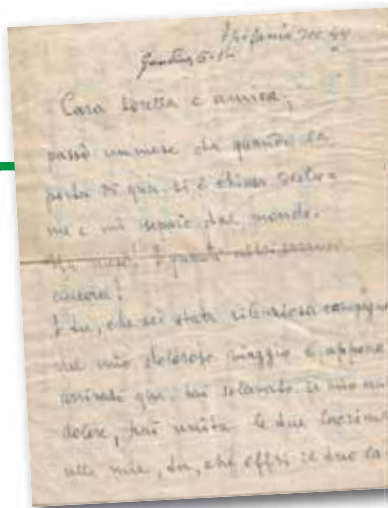 Epifania del 44
Cara sorella e amica,
passò un mese da quando la
porta di qua si è chiusa dietro
me e mi separò dal mondo.
Un mese! E quanti
ancora!
E tu, che sei stata silenziosa compagna
nel mio doloroso viaggio e appena
arrivata qui hai sollevato il mio
dolore, hai unito le tue lacrime
alle mie, tu, che offri il tuo